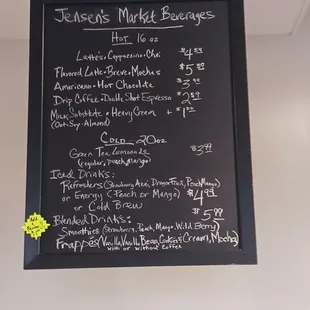 Jensen's Market Beverages
Hot 16 oz
Latte's · Cappuccino · Chai $4
Flavored Latte · Breve · Mochas $5
Americano · Hot Chocolate $3
Drip Coffee · Double Shot Espresso $2
Milk Substitute · Heavy Cream +$1
(Oat · Soy · Almond)
Cold 20oz
Green Tea Lemonade $3
(regular, Peach, Mango)
Iced Drinks:
Refreshers (Strawberry Acai, Dragon Fruit, Peach Mango)
or Energy (Peach or Mango) $4
or Cold Brew
Blended Drinks: $5
Smoothies (Strawberry, Peach, Mango, Wild Berry)
Frappés (Vanilla, Vanilla Bean, Cookies & Cream, Mocha)
with or without coffee